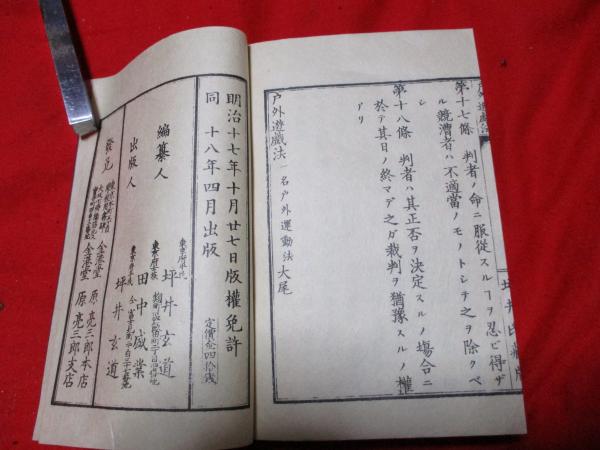 第十七條 判者ノ命ニ服從スルヿヲ忍ビ得ザ
ル競漕者ハ不適當ノモノトシテ之ヲ除クベ
シ
第十八條 判者ハ其正否ヲ決定スルノ場合ニ
於テ其日ノ終マデ之ガ裁判ヲ猶豫スルノ權
アリ
戶外遊戲法 一名戶外運動法大尾
明治十七年十月廿七日版權免許
同 十八年四月出版
定價金四拾錢
編纂人
東京府平民
坪井玄道
田中盛業
出版人
坪井玄道
發兌
金港堂 原亮三郎本店
金港堂 原亮三郎支店